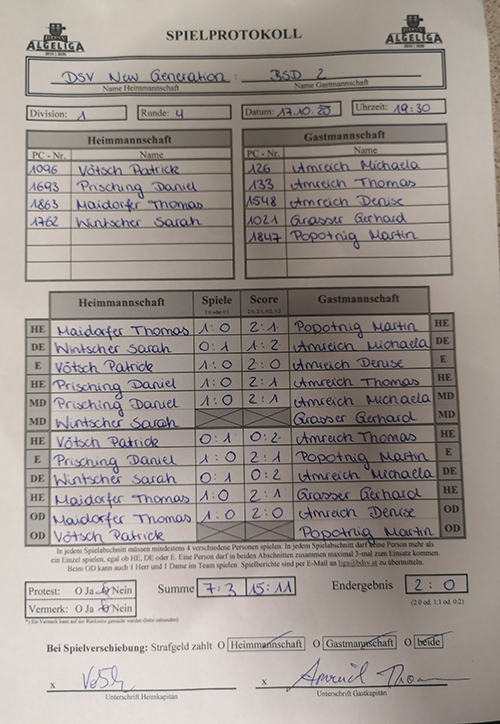 ALGELIGA SPIELPROTOKOLL ALGELIGA
DSV New Generation : BSD 2
Name Heimmannschaft Name Gastmannschaft
Division: 1 Runde: 4 Datum: 17.10. Uhrzeit: 19:30
Heimmannschaft Gastmannschaft
PC - Nr. Name PC - Nr. Name
1096 Vötsch Patrick 126 Amreich Michaela
1693 Prisching Daniel 133 Amreich Thomas
1863 Maidorfer Thomas 1548 Amreich Denise
1762 Wintscher Sarah 1021 Grasser Gerhard
1847 Popotnig Martin
Heimmannschaft Spiele Score Gastmannschaft
1:0 oder 0:1 2:0, 2:1, 0:2, 1:2
HE Maidorfer Thomas 1:0 2:1 Popotnig Martin HE
DE Wintscher Sarah 0:1 1:2 Amreich Michaela DE
E Vötsch Patrick 1:0 2:0 Amreich Denise E
HE Prisching Daniel 1:0 2:1 Amreich Thomas HE
MD Prisching Daniel 1:0 2:1 Amreich Michaela MD
MD Wintscher Sarah Grasser Gerhard MD
HE Vötsch Patrick 0:1 0:2 Amreich Thomas HE
E Prisching Daniel 1:0 2:1 Popotnig Martin E
DE Wintscher Sarah 0:1 0:2 Amreich Michaela DE
HE Maidorfer Thomas 1:0 2:1 Grasser Gerhard HE
OD Maidorfer Thomas 1:0 2:0 Amreich Denise OD
OD Vötsch Patrick Popotnig Martin OD
In jedem Spielabschnitt müssen mindestens 4 verschiedene Personen spielen. In jedem Spielabschnitt darf keine Person mehr als
ein Einzel spielen, egal ob HE, DE oder E. Eine Person darf in beiden Abschnitten zusammen maximal 3-mal zum Einsatz kommen.
Beim OD kann auch 1 Herr und 1 Dame im Team spielen. Spielberichte sind per E-Mail an zu übermitteln.
Protest: O Ja O Nein Summe 7:3 15:11 Endergebnis 2:0
Vermerk: O Ja O Nein (2:0 od. 1:1 od. 0:2)
*) Ein Vermerk kann auf der Rückseite gemacht werden (bitte ankreuzen)
Bei Spielverschiebung: Strafgeld zahlt O Heimmannschaft O Gastmannschaft O beide
x x
Unterschrift Heimkapitän Unterschrift Gastkapitän